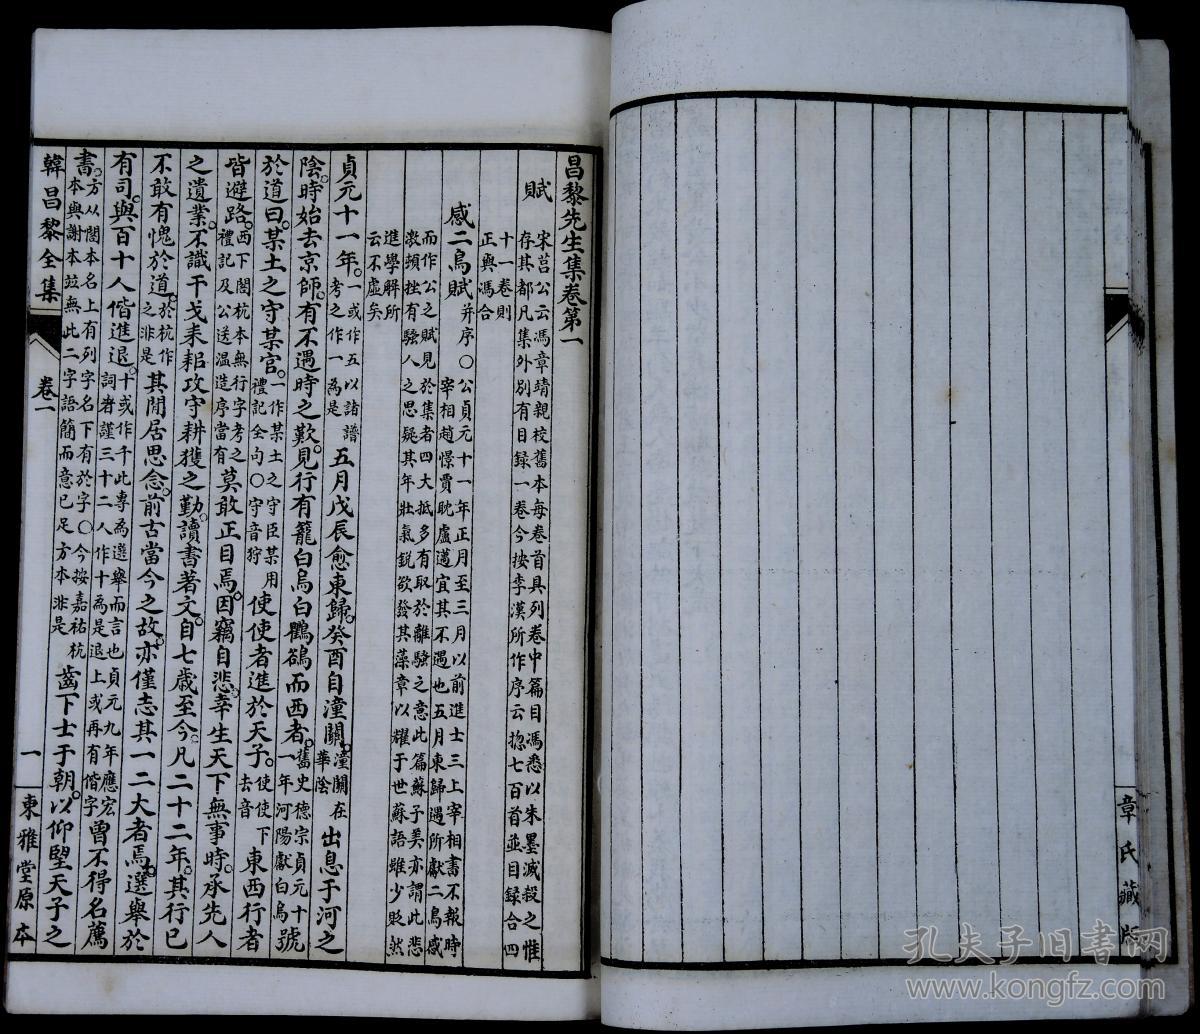 章氏藏版
昌黎先生集卷第一
賦
宋莒公云馮章靖親校舊本每卷首具列卷中篇目馮悉以朱墨滅殺之惟
存其都凡集外別有目録一卷今按李漢所作序云揔七百首並目録合四
十一卷則
正與馮合
感二鳥賦
并序〇公貞元十一年正月至三月以前進士三上宰相書不報時
宰相趙憬賈耽盧邁宜其不遇也五月東歸遇所獻二鳥感
而作公之賦見於集者四大抵多有取於離騷之意此篇蘇子美亦謂此悲
激頓挫有騷人之思疑其年壯氣鋭欲發其藻章以耀于世蘇語雖少貶然
進學解所
云不虛矣
貞元十一年。一或作五以諸譜考之作一為是五月戊辰愈東歸。癸酉自潼關。潼關在華陰出息于河之
陰。時始去京師。有不遇時之歎。見行有籠白烏白鸜鵒而西者。舊史德宗貞元十一年河陽獻白烏號
於道曰。某土之守某官。一作某土之守臣某用禮記全句〇守音狩使使者進於天子。使使下去音東西行者
皆避路。西下閣杭本無行字考之禮記及公送温造序當有莫敢正目焉。因竊自悲。幸生天下無事時。承先人
之遺業。不識干戈耒耜攻守耕獲之勤。讀書著文。自七歲至今。凡二十二年。其行已
不敢有愧於道。於杭作之非是其閒居思念。前古當今之故。亦僅志其一二大者焉。選舉於
有司。與百十人偕進退。十或作千此專為選舉而言也貞元九年應宏詞者謹三十二人作十為是退上或再有偕字曾不得名薦
書。方从閣本名上有列字名下有於字〇今按嘉祐杭本與謝本竝無此二字語簡而意已足方本非是齒下士于朝。以仰望天子之
韓昌黎全集
卷一
一
東雅堂原本
孔夫子旧书网
www.kongfz.com